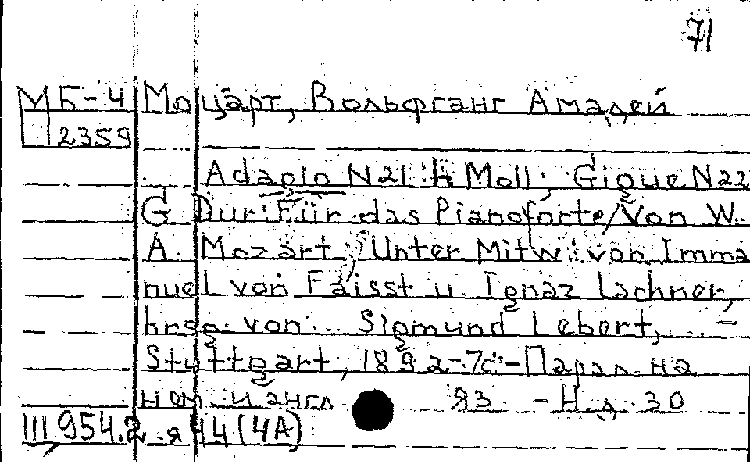 71
МБ-4 Моцарт, Вольфганг Амадей
2359
Adagio N21 H Moll; Gigue N22
G Dur: Für das Pianoforte/Von W.
A. Mozart; Unter Mitw. von Imma
nuel von Faisst u. Ignaz Lachner,
hrsg. von Sigmund Lebert, -
Stuttgart, 1892-7c-Парал. на
нем. и англ яз - Н.д. 30
III 954.2 я 44 (4А)